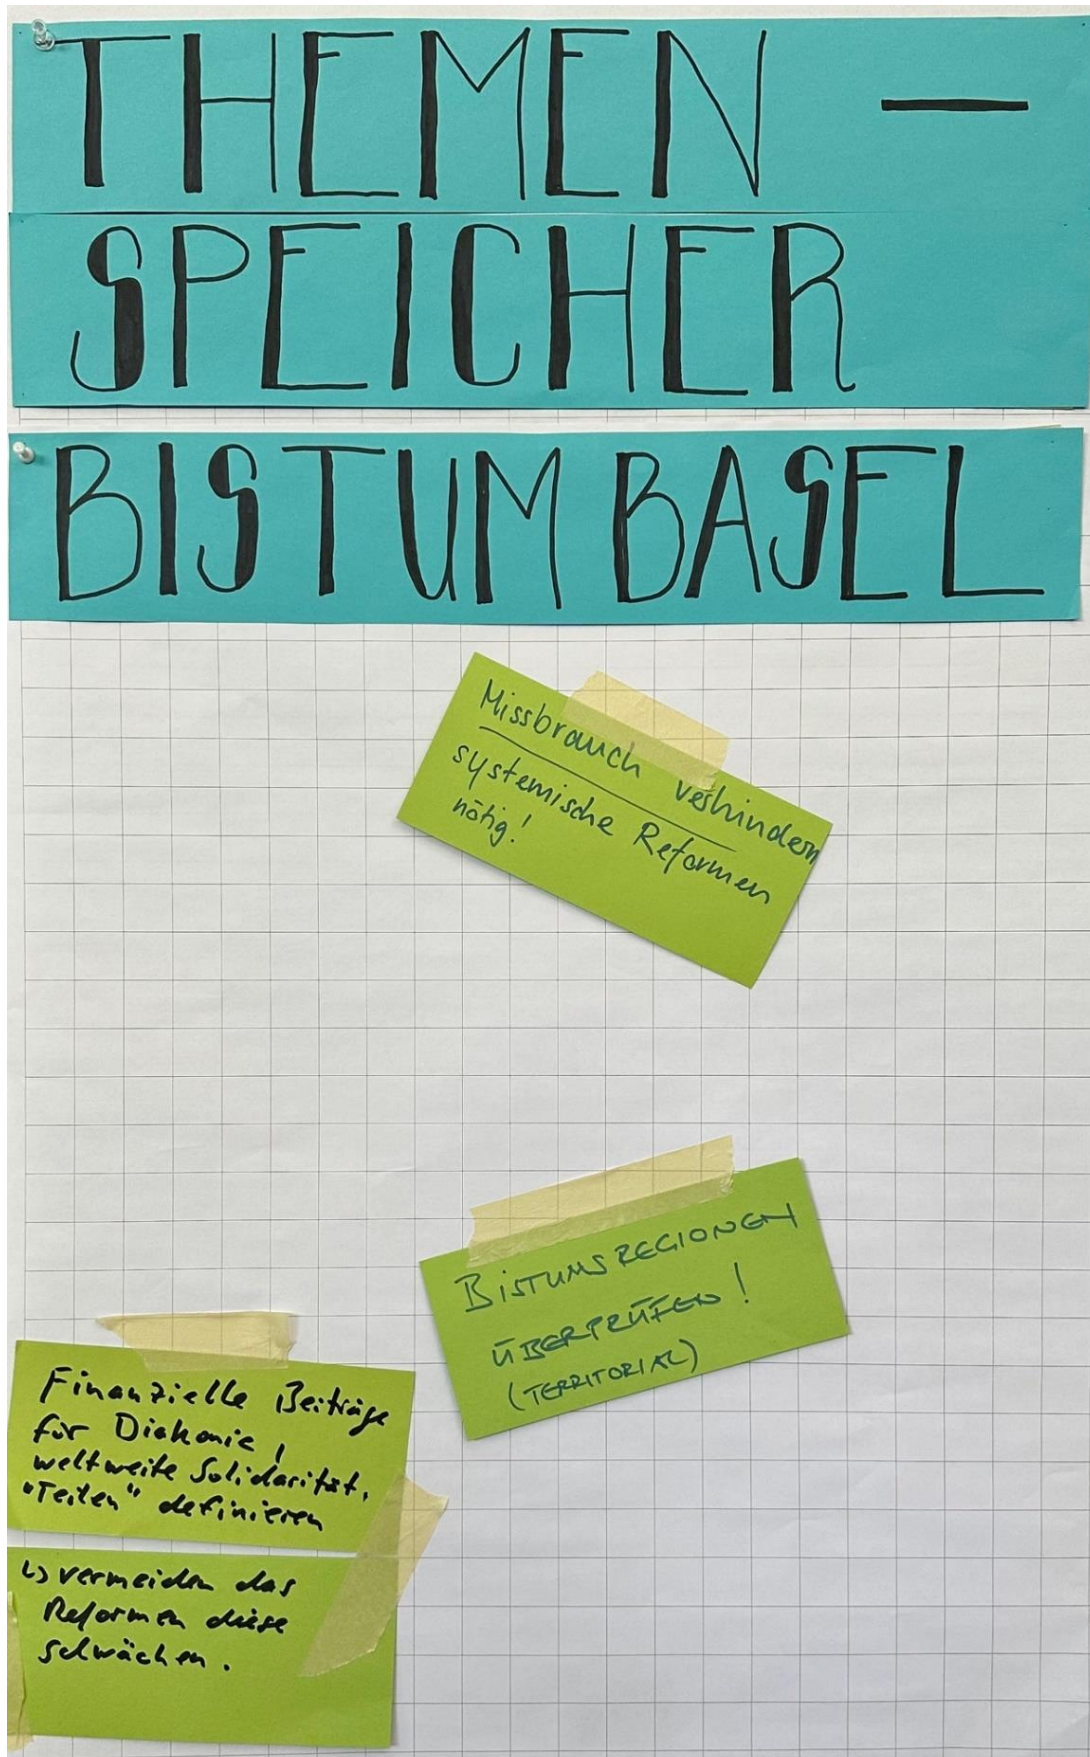 THEMEN —
SPEICHER
BISTUM BASEL
Missbrauch verhindern
systemische Reformen
nötig!
BISTUMSREGIONEN
ÜBERPRÜFEN!
(TERRITORIAL)
Finanzielle Beiträge
für Diakonie,
weltweite Solidarität,
"Teilen" definieren
↳ vermeiden das
Reformen diese
schwächen.